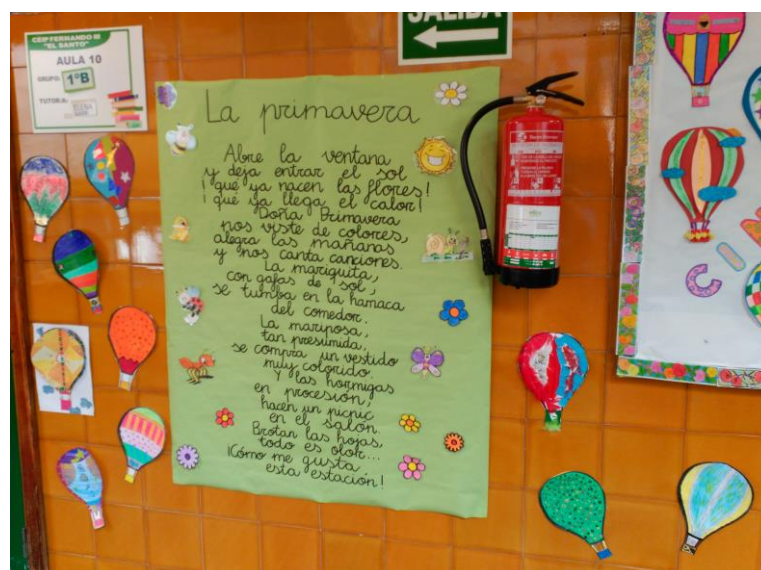 CEIP FERNANDO III
"EL SANTO"
AULA 10
GRUPO: 1ºB
TUTOR/A:
SALIDA
La primavera
Abre la ventana
y deja entrar el sol
¡que ya nacen las flores!
¡que ya llega el calor!
Doña Primavera
nos viste de colores,
alegra las mañanas
y nos canta canciones.
La mariquita,
con gafas de sol,
se tumba en la hamaca
del comedor.
La mariposa,
tan presumida,
se compra un vestido
muy colorido.
Y las hormigas
en procesión,
hacen un picnic
en el salón.
Brotan las hojas,
todo es olor...
¡Cómo me gusta
esta estación!